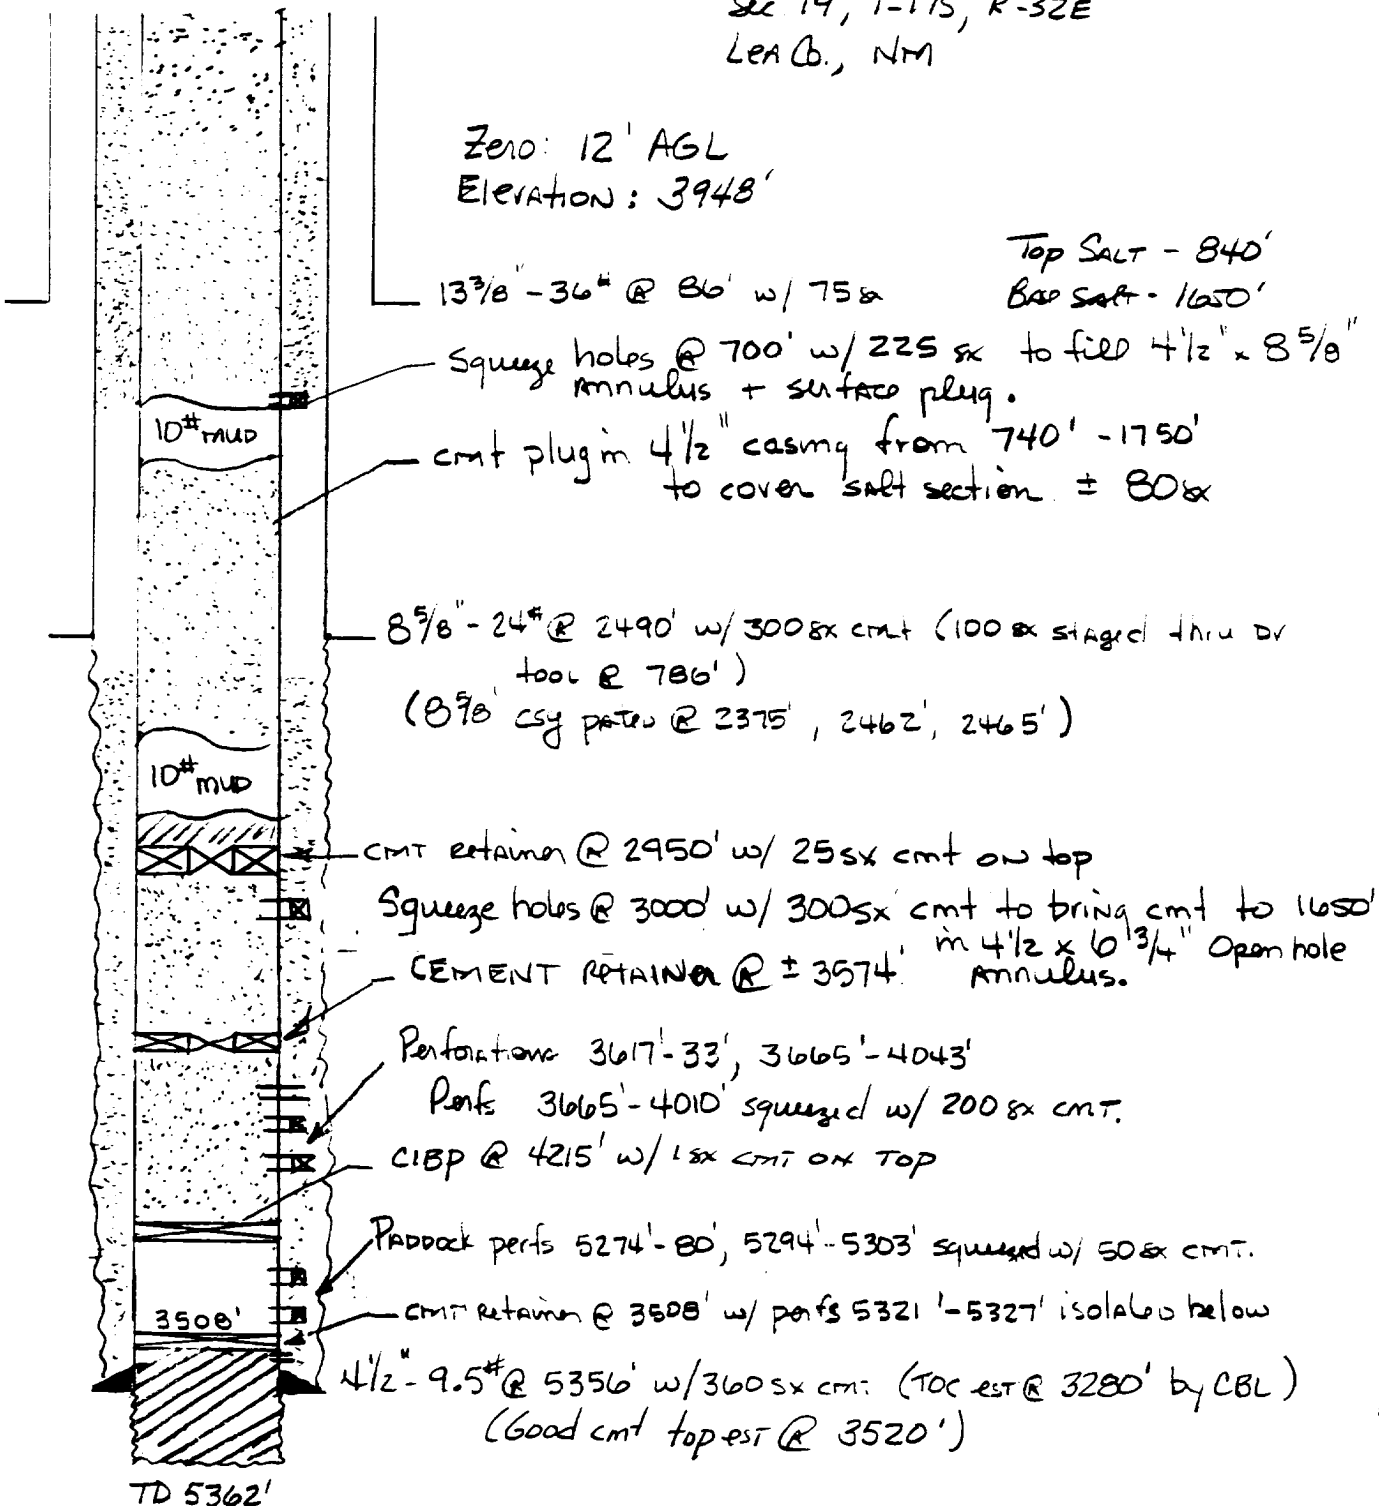 Sec 19, T-17S, R-32E
Lea Co., NM
Zero: 12' AGL
Elevation: 3948'
Top Salt - 840'
Base Salt - 1650'
13 3/8" - 36# @ 86' w/ 75 sx
Squeeze holes @ 700' w/ 225 sx to fill 4 1/2" x 8 5/8"
Annulus + surface plug.
10# mud
cmt plug in 4 1/2" casing from 740' - 1750'
to cover salt section ± 80 sx
8 5/8" - 24# @ 2490' w/ 300 sx cmt (100 sx staged thru DV
tool @ 786')
(8 5/8" csg @ 2375', 2462', 2465')
10# mud
CMT retainer @ 2950' w/ 25 sx cmt on top
Squeeze holes @ 3000' w/ 300 sx cmt to bring cmt to 1650'
in 4 1/2 x 6 3/4" Open hole
Annulus.
CEMENT RETAINER @ ± 3574'
Perforations 3617'-33', 3665'-4043'
Perfs 3665'-4010' squeezed w/ 200 sx cmt.
CIBP @ 4215' w/ 1 sx cmt on top
Paddock perfs 5274'-80', 5294'-5303' squeezed w/ 50 sx cmt.
3508'
CMT Retainer @ 3508' w/ perfs 5321'-5327' isolated below
4 1/2" - 9.5# @ 5356' w/ 360 sx cmt. (TOC est @ 3280' by CBL)
(Good cmt top est @ 3520')
TD 5362'